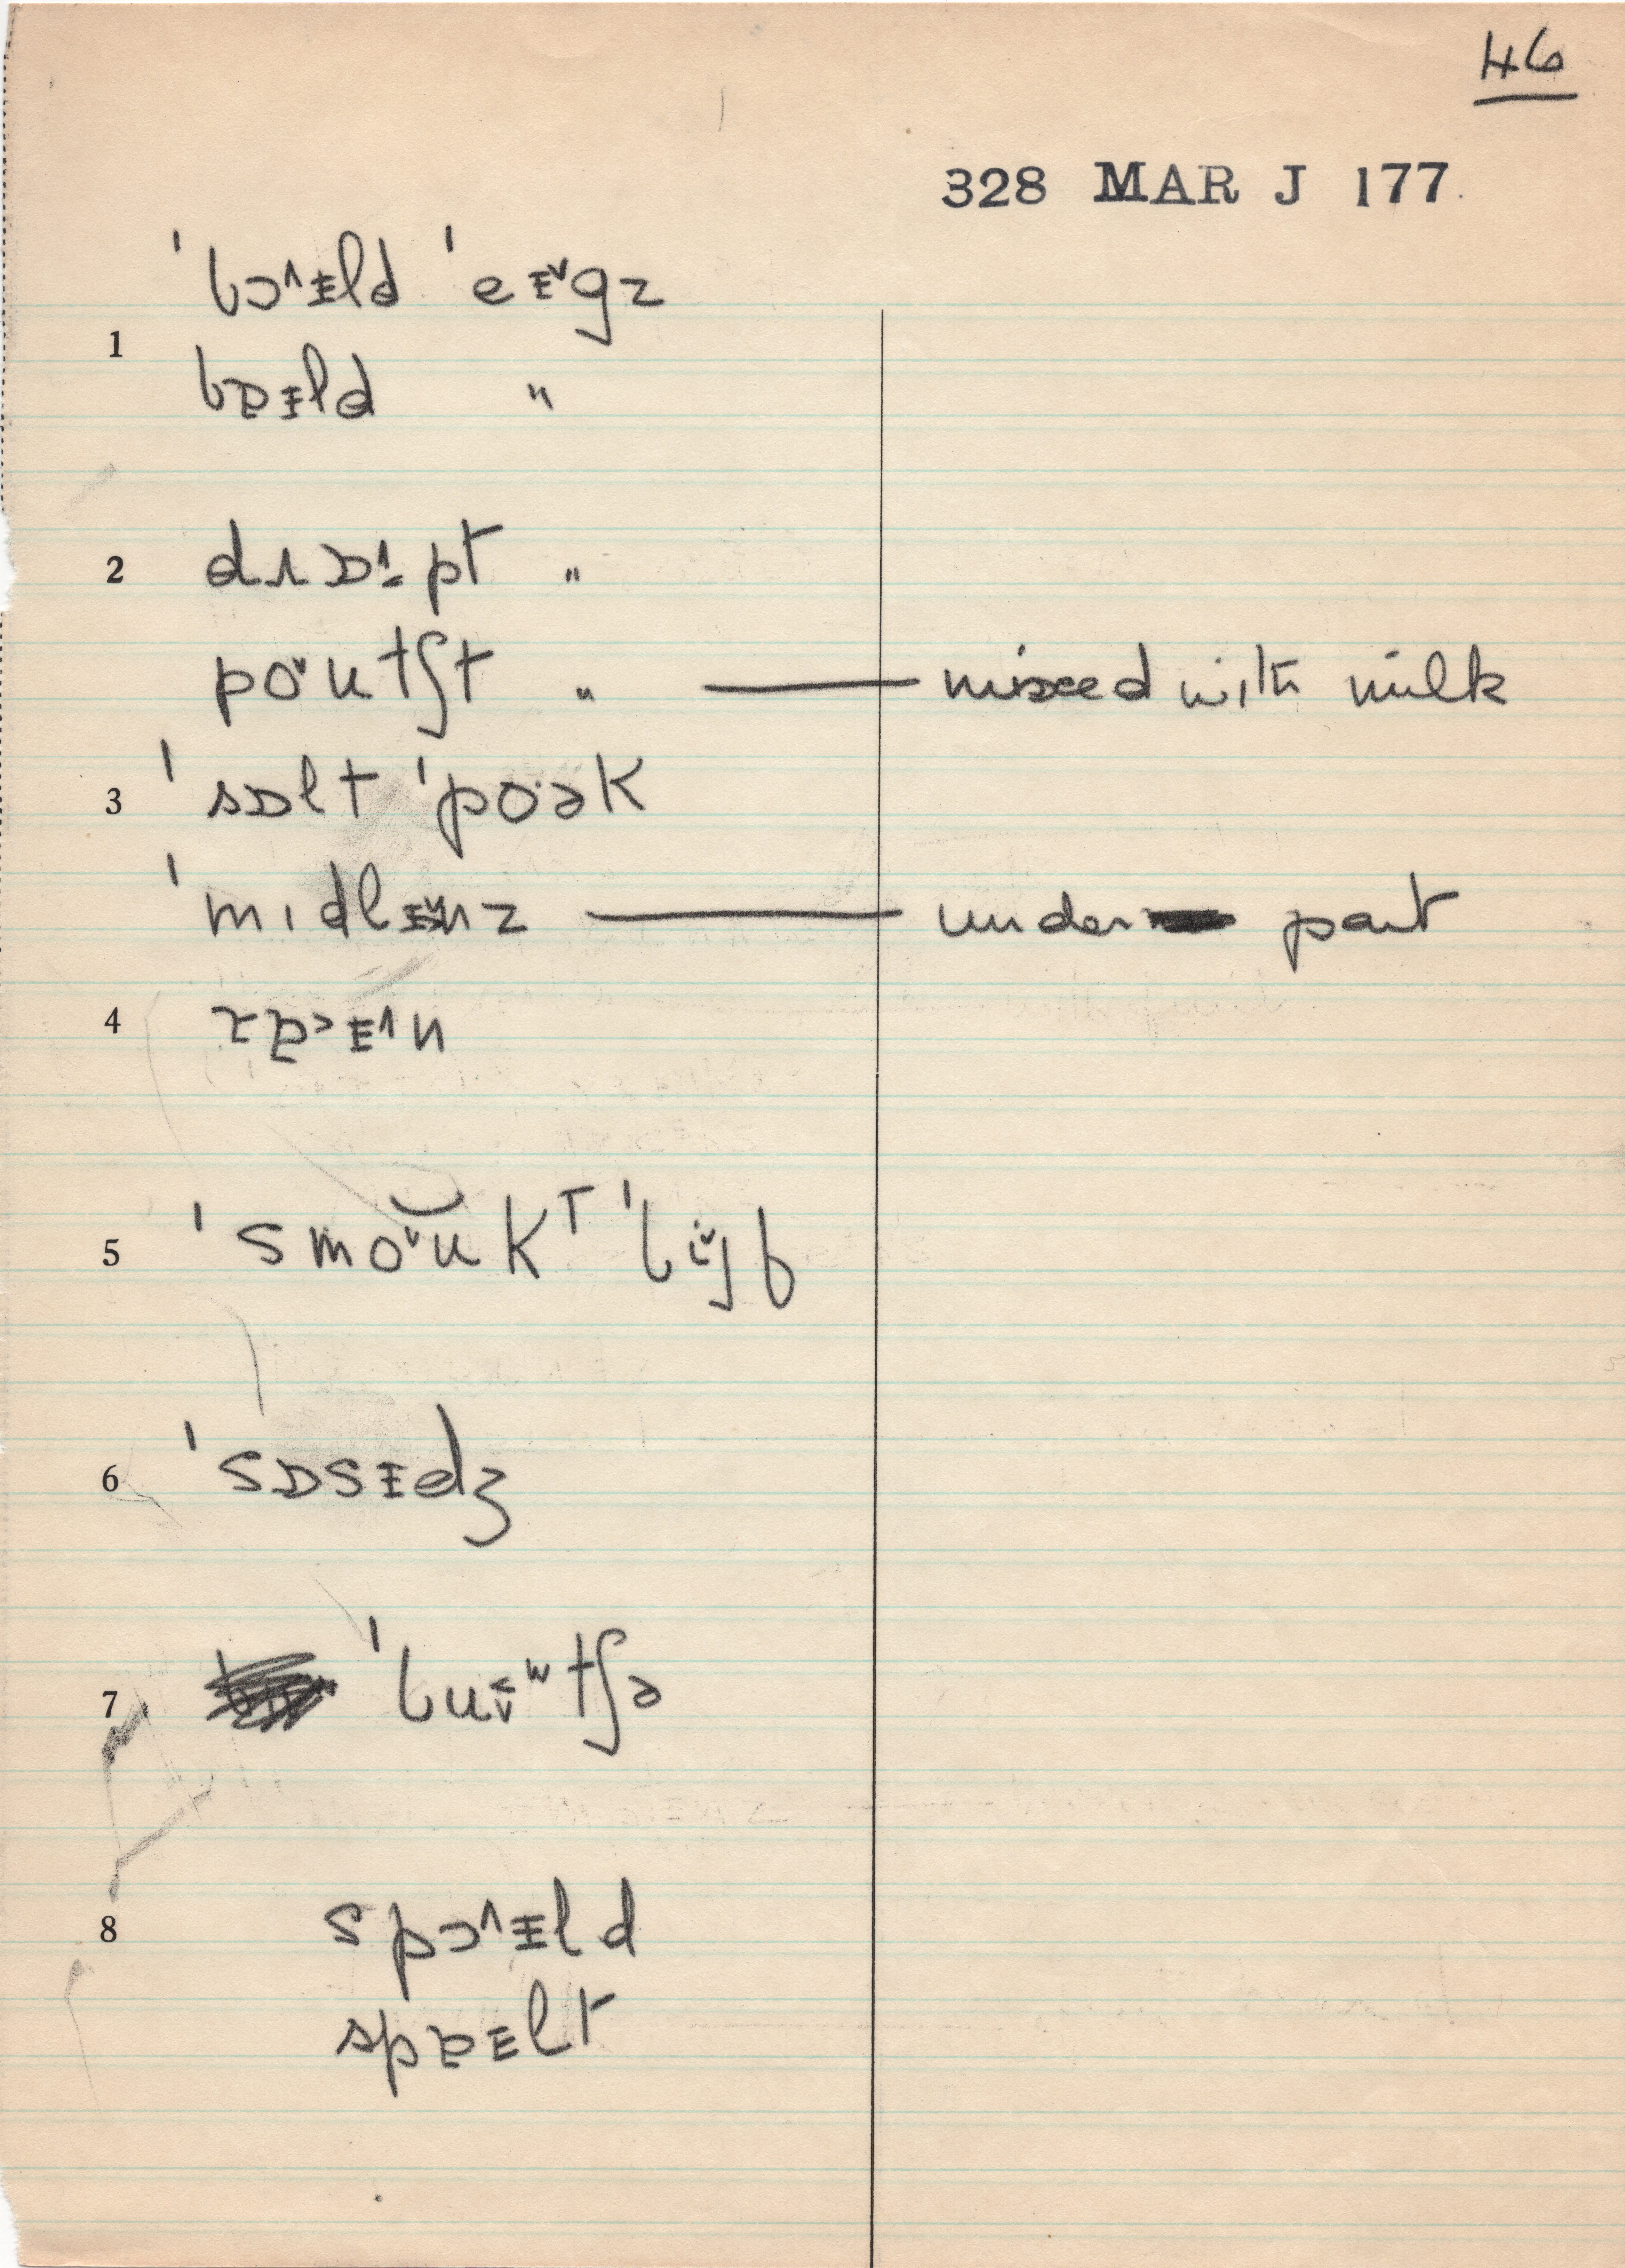 46
328 MAR J 177
ˈbɔ˄ɪld ˈeɪ˅gz
1
bɒɪld "
2 dɹɒ˄pt "
po˅utʃt " — mixed with milk
3 ˈsɒlt ˈpoˑək
ˈmɪdlɪ˅nz — under part
4 rɒ˃ɪ˄n
5 ˈsmo˅ukᵀ ˈbi˅jf
6 ˈsɒsɪdʒ
7 ˈbuʷtʃə
8 spɔ˄ɪld
spɒɪlt